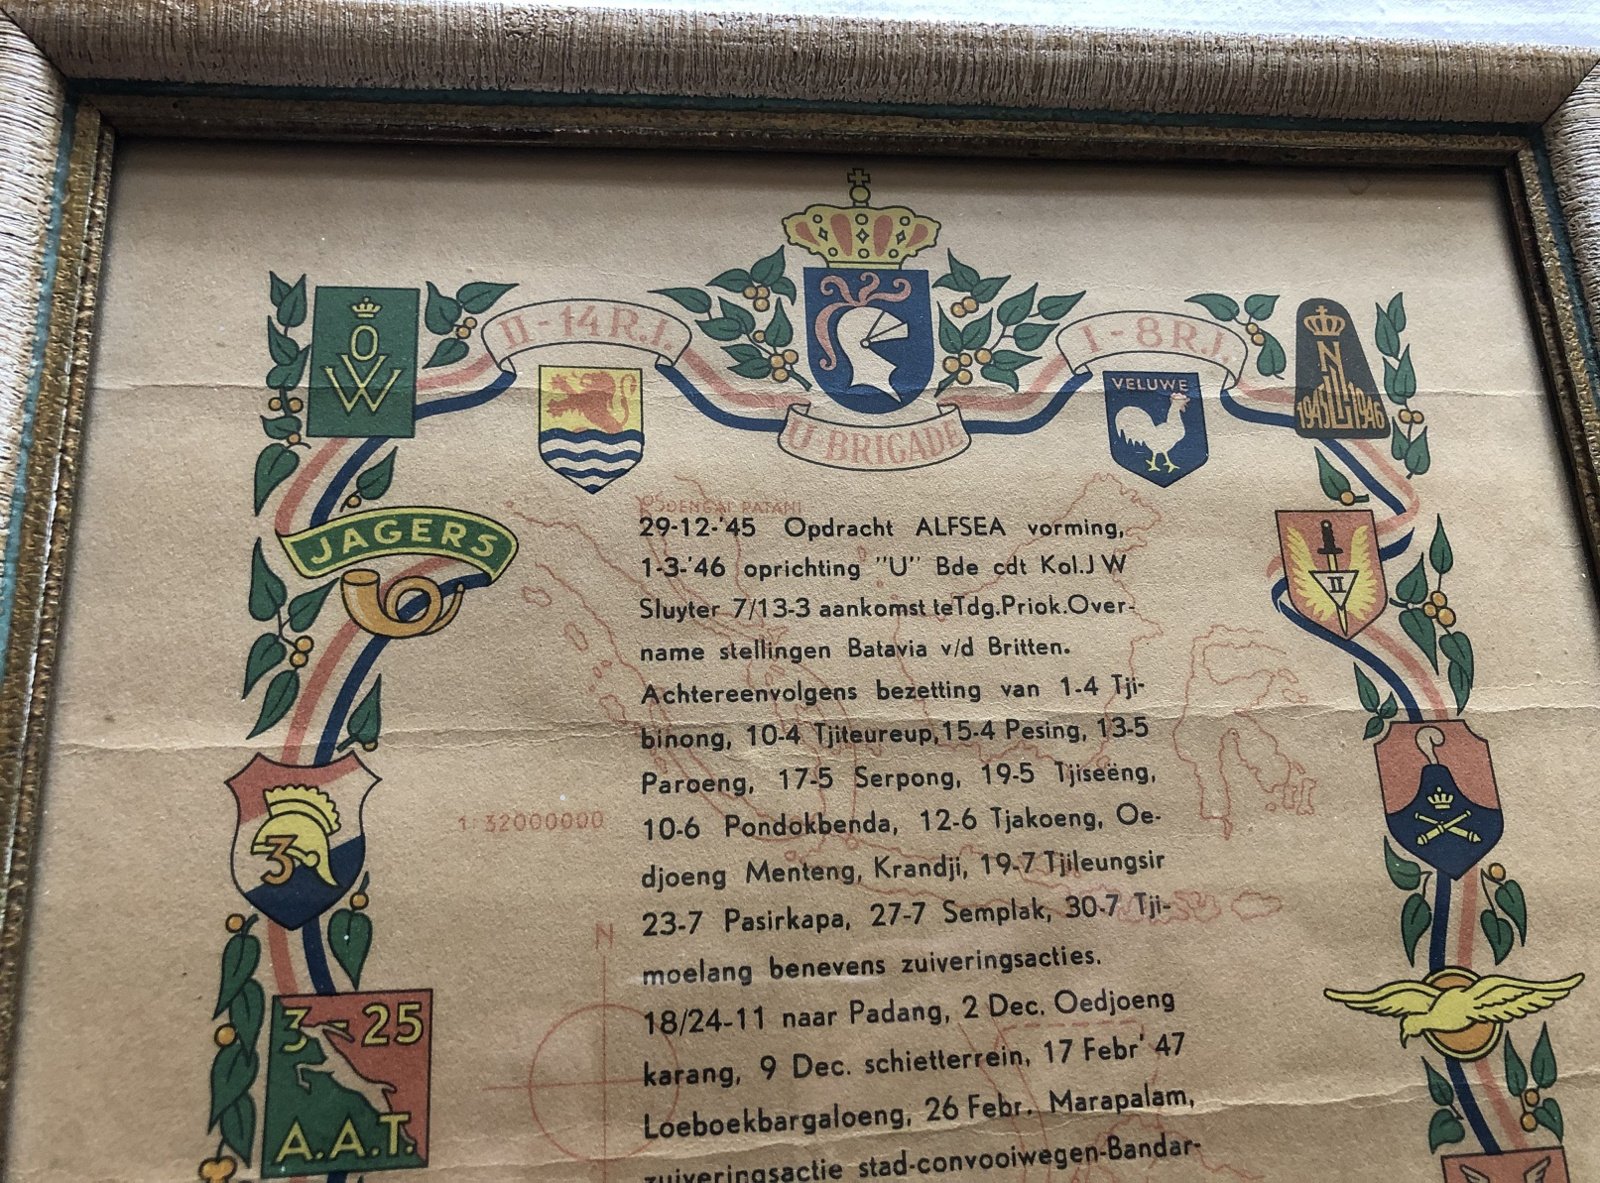 O
W
II - 14 R.I.
U-BRIGADE
I - 8 R.I.
VELUWE
N
1945 1946
JAGERS
II
3
3-25
A.A.T.
1:32000000
N
29-12-'45 Opdracht ALFSEA vorming,
1-3-'46 oprichting "U" Bde cdt Kol.J W
Sluyter 7/13-3 aankomst te Tdg.Priok.Over-
name stellingen Batavia v/d Britten.
Achtereenvolgens bezetting van 1-4 Tji-
binong, 10-4 Tjiteureup, 15-4 Pesing, 13-5
Paroeng, 17-5 Serpong, 19-5 Tjiseëng,
10-6 Pondokbenda, 12-6 Tjakoeng, Oe-
djoeng Menteng, Krandji, 19-7 Tjileungsir
23-7 Pasirkapa, 27-7 Semplak, 30-7 Tji-
moelang benevens zuiveringsacties.
18/24-11 naar Padang, 2 Dec. Oedjoeng
karang, 9 Dec. schietterrein, 17 Febr' 47
Loeboekbargaloeng, 26 Febr. Marapalam,
zuiveringsactie stad-convooiwegen-Bandar-